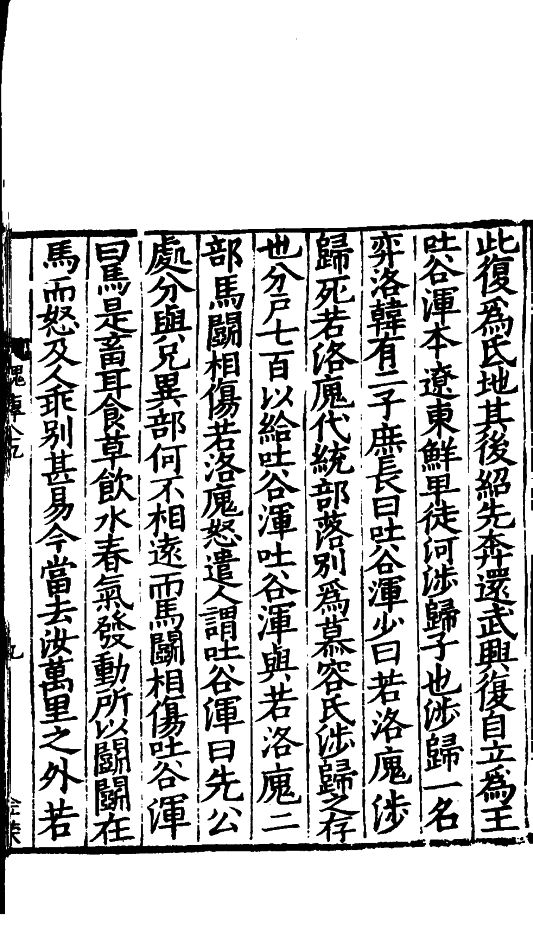 此復爲氐地其後紹先奔還武興復自立爲王
吐谷渾本遼東鮮卑徒河涉歸子也涉歸一名
弈洛韓有二子庶長曰吐谷渾少曰若洛廆涉
歸死若洛廆代統部落別爲慕容氏涉歸之存
也分戸七百以給吐谷渾吐谷渾與若洛廆二
部馬鬭相傷若洛廆怒遣人謂吐谷渾曰先公
處分與兄異部何不相遠而馬鬭相傷吐谷渾
曰馬是畜耳食草飲水春氣發動所以鬭鬭在
馬而怒及人乖別甚易今當去汝萬里之外若
九